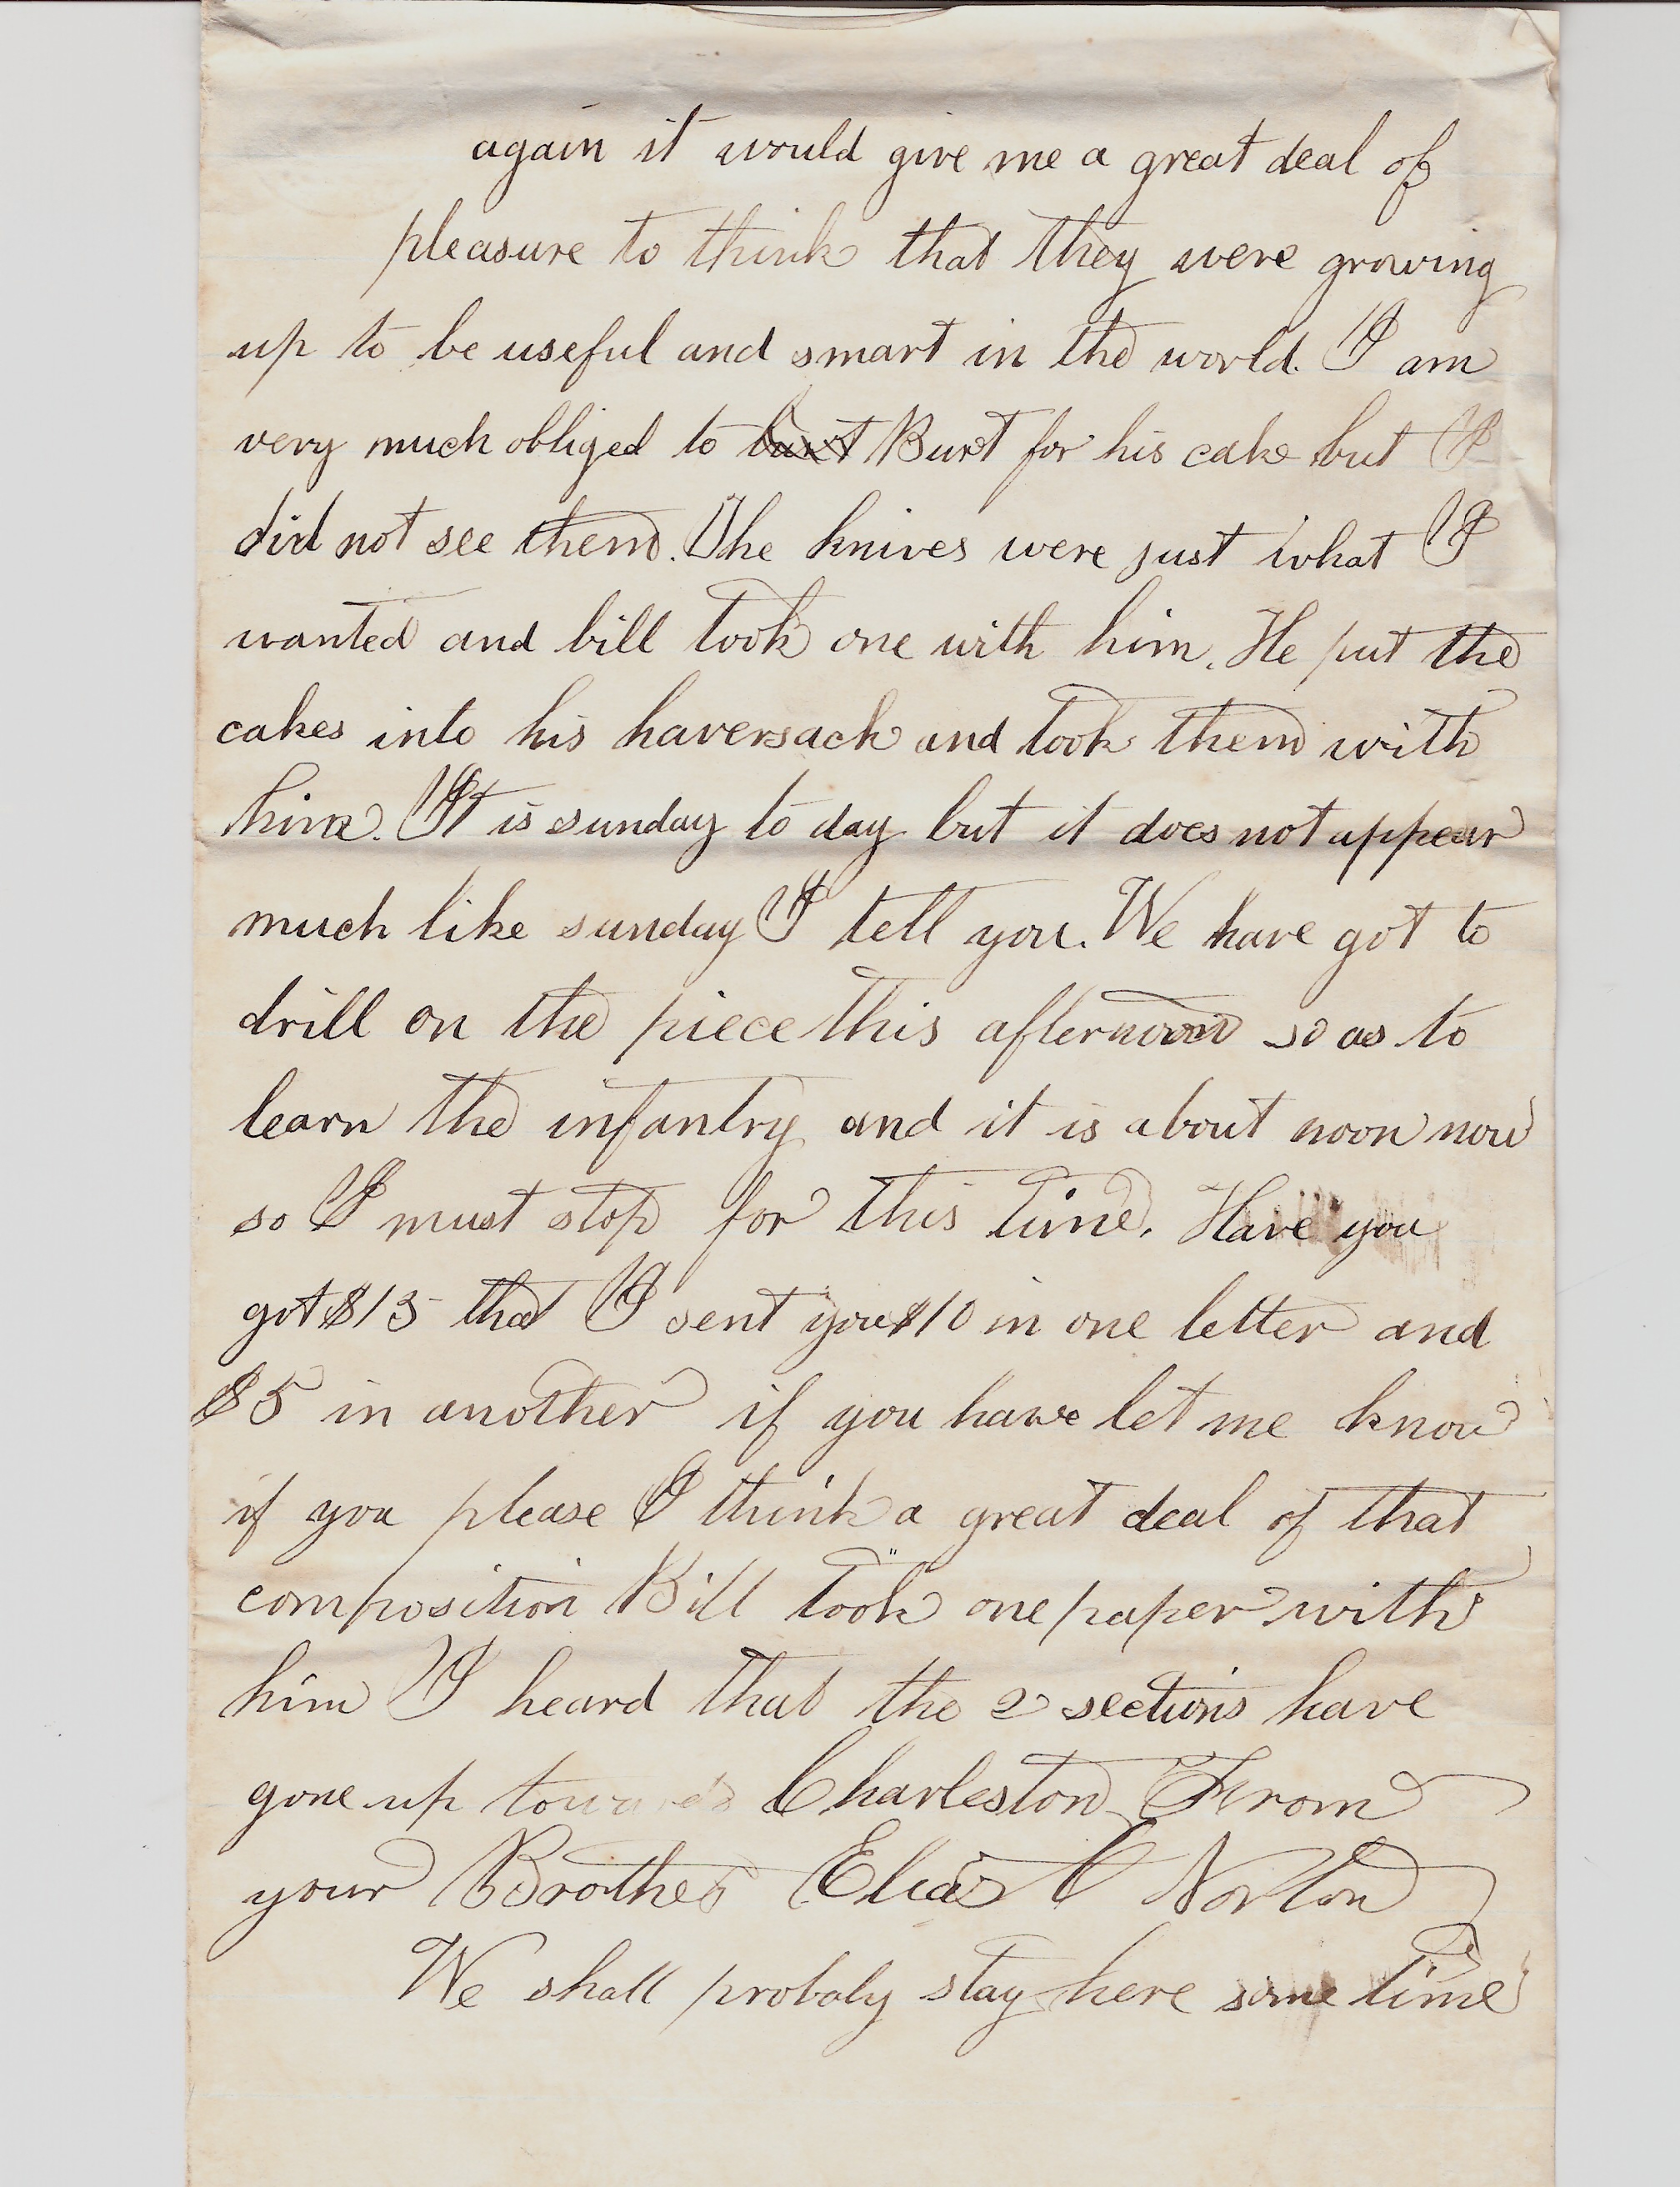 again it would give me a great deal of
pleasure to think that they were growing
up to be useful and smart in the world. I am
very much obliged to burt Burt for his cake but I
did not see them. The knives were just what I
wanted and bill took one with him. He put the
cakes into his haversack and took them with
him. It is sunday to day but it does not appear
much like sunday I tell you. We have got to
drill on the piece this afternoon so as to
learn the infantry and it is about noon now
so I must stop for this time. Have you
got $15 that I sent you $10 in one letter and
$5 in another if you have let me know
if you please I think a great deal of that
composition Bill took one paper with
him I heard that the 2 sections have
gone up towards Charleston From
your Brother Elias C Norton
We shall probaly stay here some time